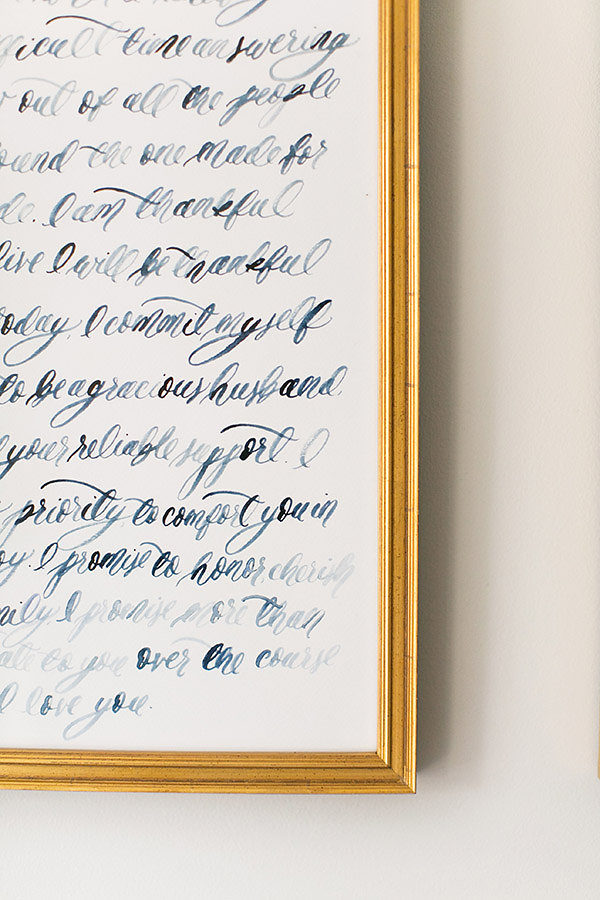 time answering
out of all the people
the one made for
I am thankful
live I will be thankful
today. I commit myself
to be a gracious husband.
your reliable support. I
priority to comfort you in
I promise to honor cherish
I promise more than
to you over the course
I love you.